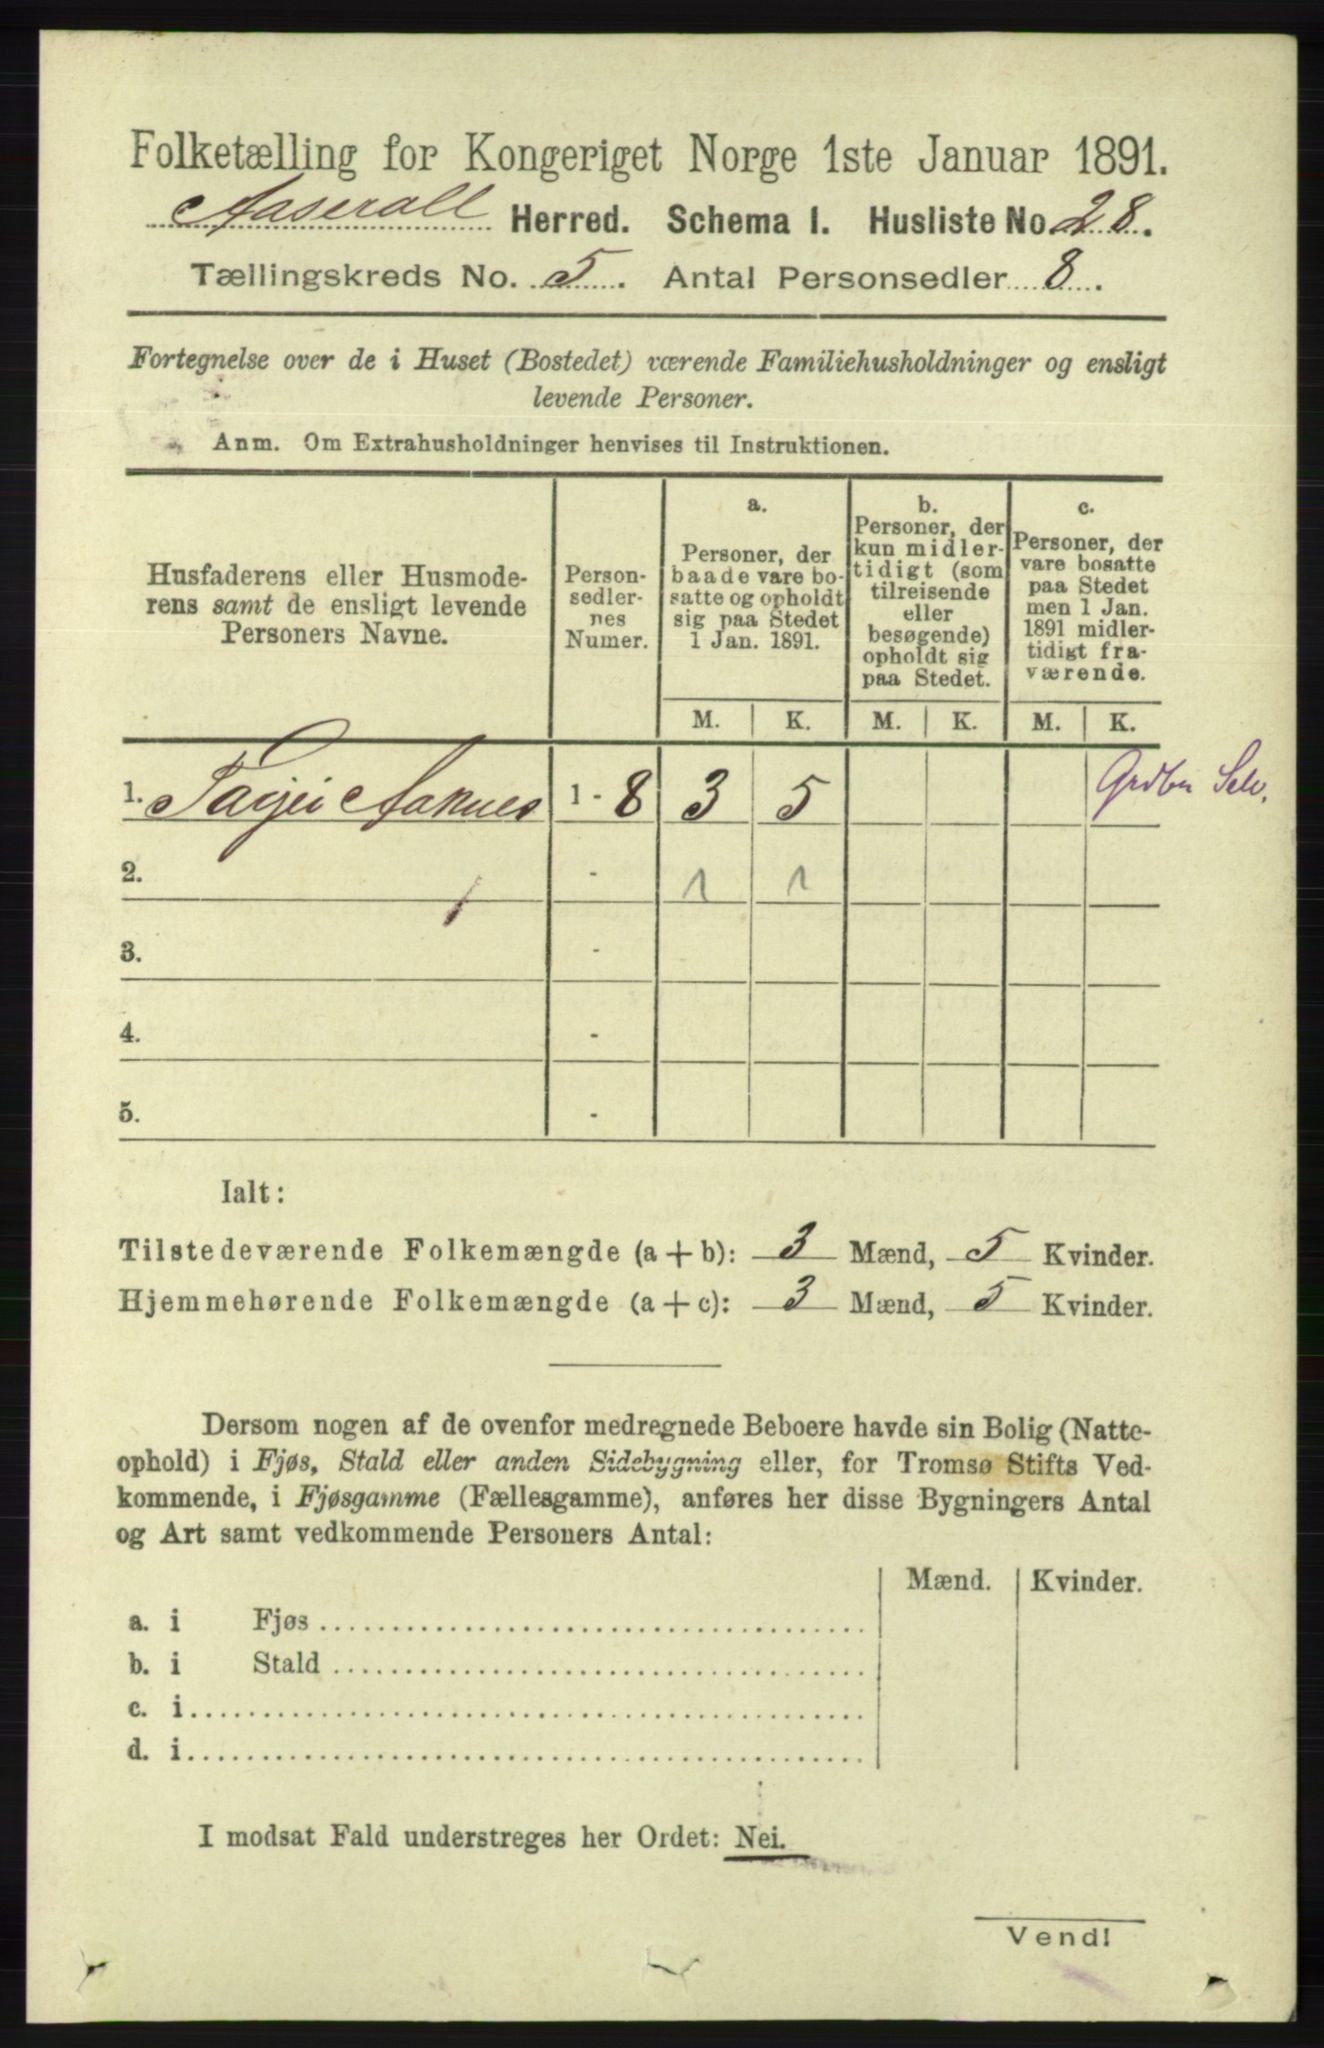 Folketælling for Kongeriget Norge 1ste Januar 1891.
Aaserall Herred. Schema I. Husliste No. 28.
Tællingskreds No. 5. Antal Personsedler 8.
Fortegnelse over de i Huset (Bostedet) værende Familiehusholdninger og ensligt
levende Personer.
Anm. Om Extrahusholdninger henvises til Instruktionen.
Husfaderens eller Husmode-
rens samt de ensligt levende
Personers Navne.
Person-
sedler-
nes
Numer.
a.
Personer, der
baade vare bo-
satte og opholdt
sig paa Stedet
1 Jan. 1891.
b.
Personer, der
kun midler-
tidigt (som
tilreisende
eller
besøgende)
opholdt sig
paa Stedet.
c.
Personer, der
vare bosatte
paa Stedet
men 1 Jan.
1891 midler-
tidigt fra-
værende.
M. K. M. K. M. K.
1. Tarjei Aaknes 1 - 8 3 5 Grdbr Selv.
2. - 1 1
3. -
4. -
5. -
Ialt:
Tilstedeværende Folkemængde (a + b): 3 Mænd, 5 Kvinder.
Hjemmehørende Folkemængde (a + c): 3 Mænd, 5 Kvinder.
Dersom nogen af de ovenfor medregnede Beboere havde sin Bolig (Natte-
ophold) i Fjøs, Stald eller anden Sidebygning eller, for Tromsø Stifts Ved-
kommende, i Fjøsgamme (Fællesgamme), anføres her disse Bygningers Antal
og Art samt vedkommende Personers Antal:
Mænd. Kvinder.
a. i Fjøs
b. i Stald
c. i
d. i
I modsat Fald understreges her Ordet: Nei.
Vend!